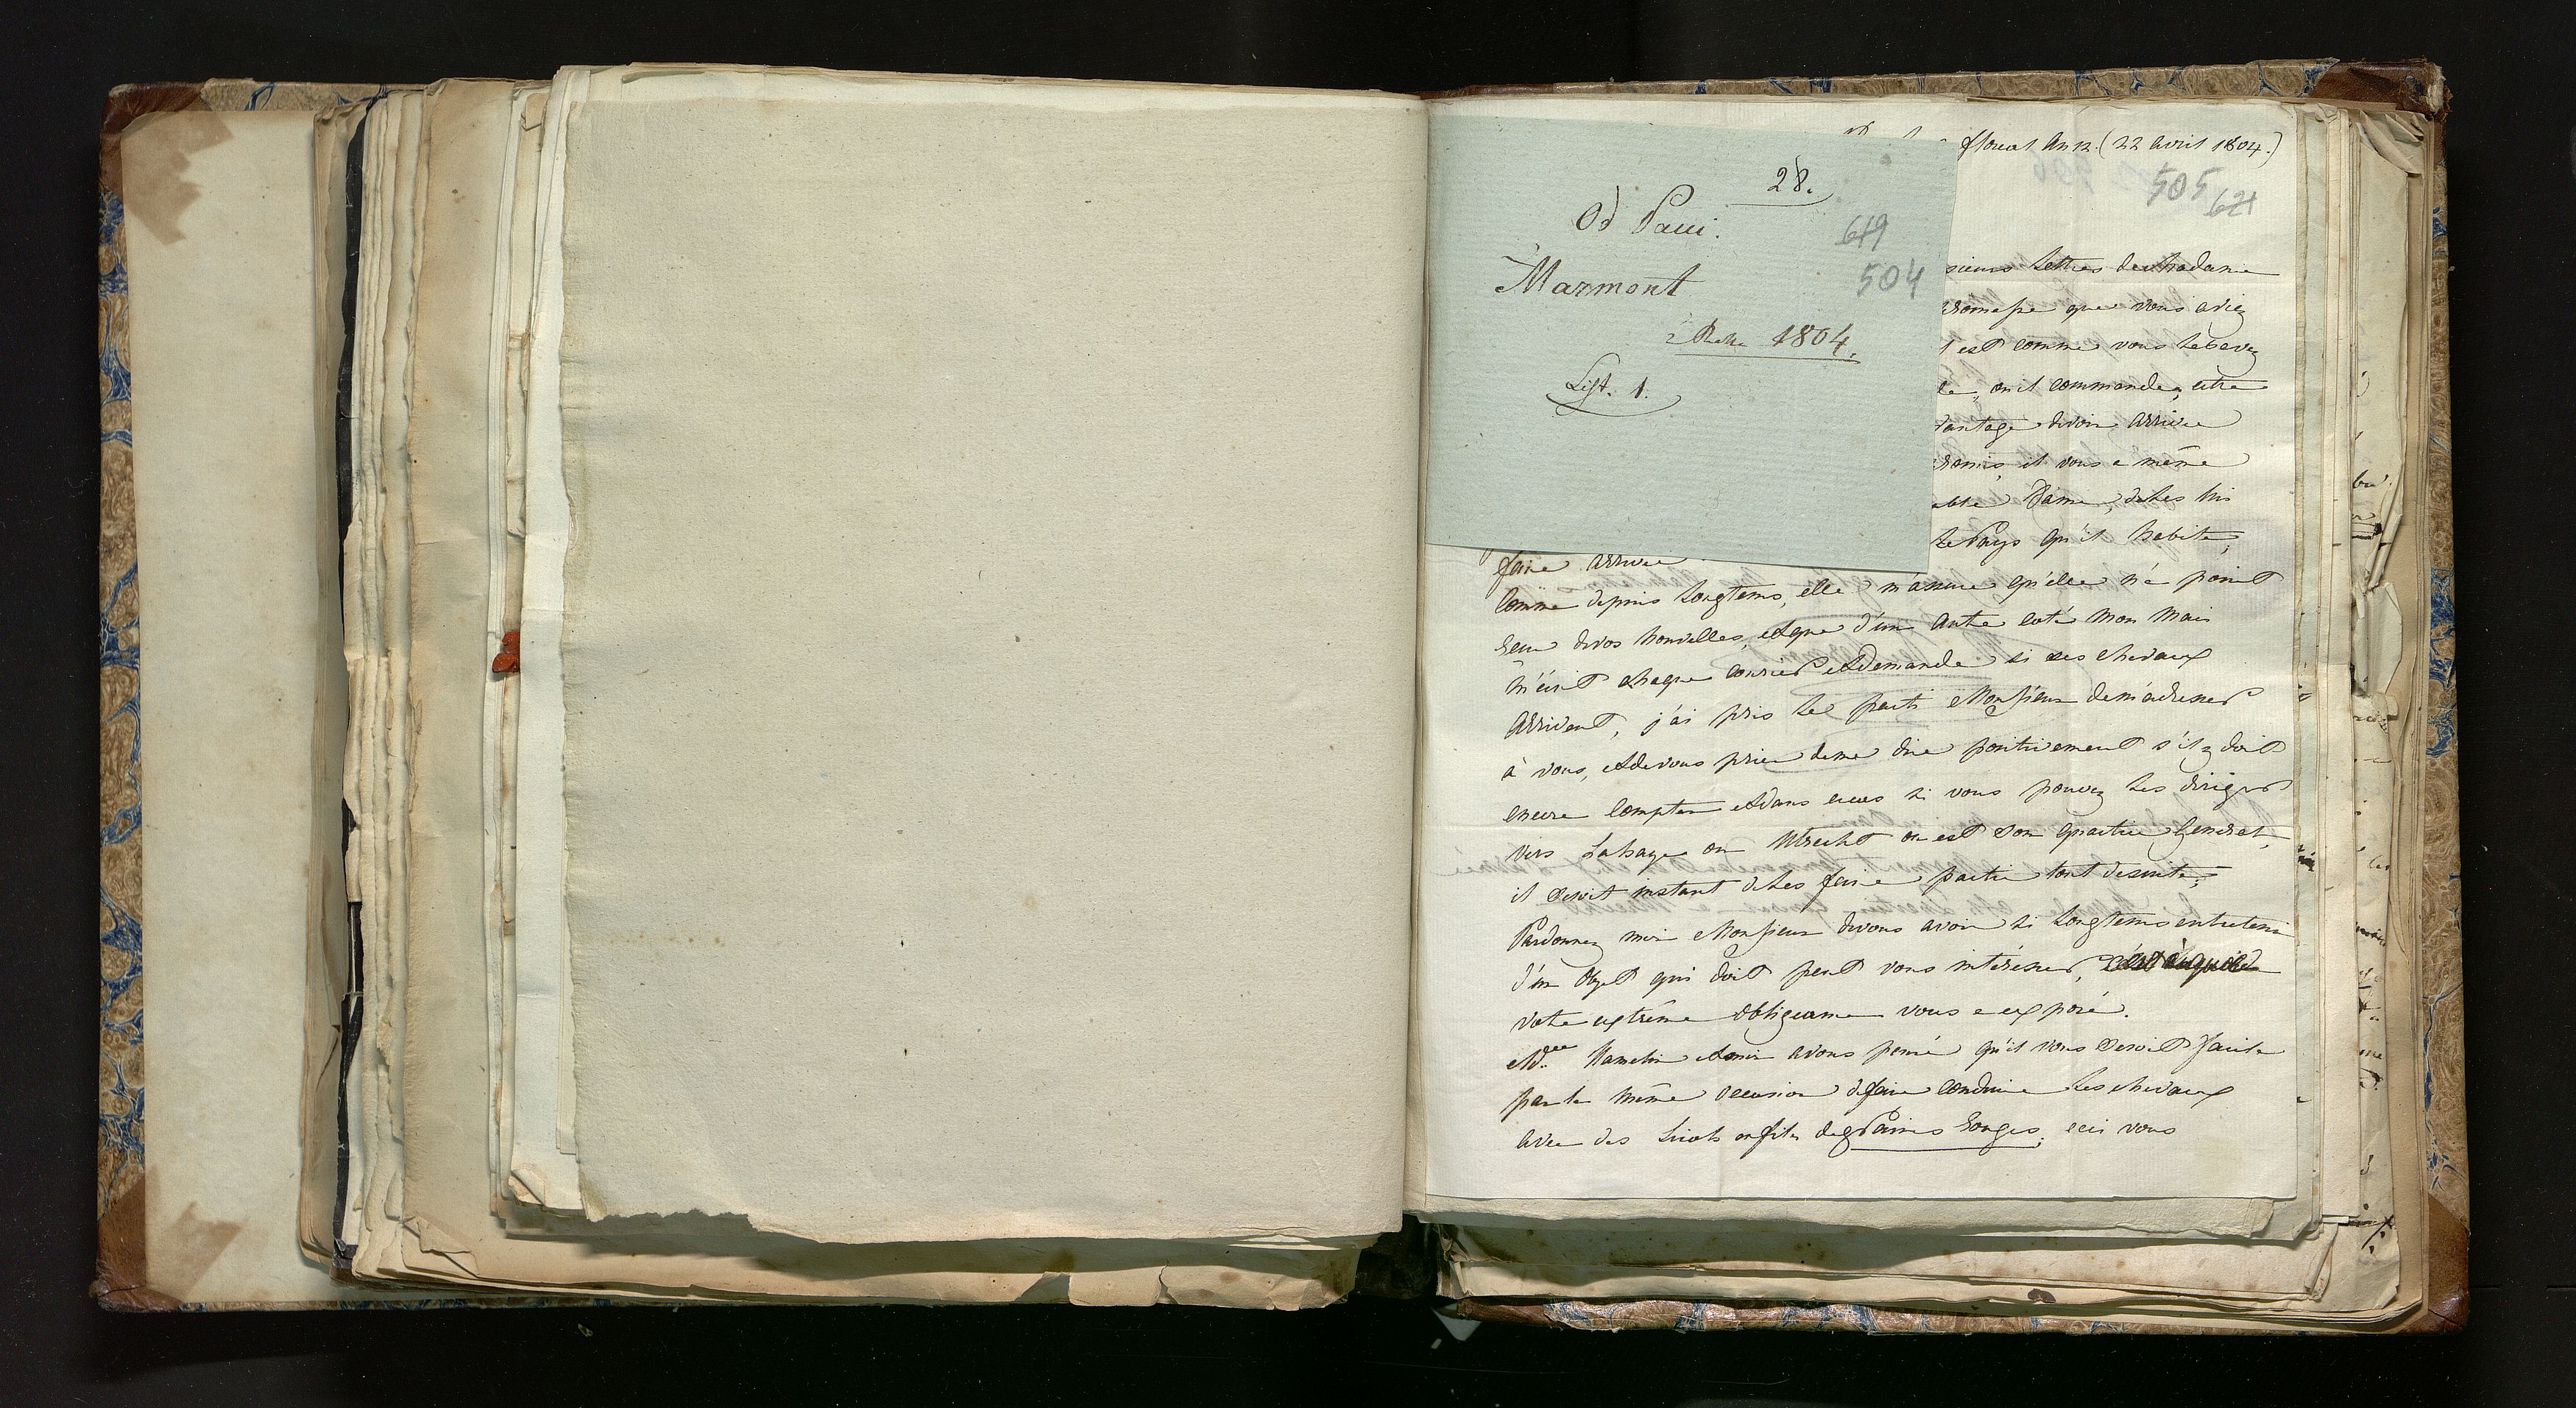 28.
Od Pani.
Marmont
z Roku 1804.
List. 1.
619
504
floreal An 12. (22 avril 1804.)
505
621
sieurs Lettres de Madame
promesse que vous aviez
est comme vous le savez
ou il commande, etre
vantage d'avoir arrivée
promis, il vous a même
Dame, de les lui
le Pays qu'il habite,
faire arriver
Comme depuis Longtems, elle m'assure qu'elle n'a point
reçu de vos nouvelles, et que d'un autre coté mon Mari
m'écrit chaque courier et demande si ses chevaux
arrivent, j'ai pris le parti Monsieur de m'adresser
à vous, et de vous prier de me dire positivement s'il y doit
encore compter et dans ce cas si vous pouvez les diriger
vers Lahaye ou Utrecht ou est son quartier General,
il seroit instant de les faire partir tout de suite;
Pardonnez moi Monsieur de vous avoir si Longtems entretenu
d'un objet qui doit peut vous intéresser,
votre extrême obligeance vous a exposé.
Md.e Hamelin et moi avons pensé qu'il vous seroit facile
par la même occasion de faire conduire les chevaux
avec des Licols en fils de Grains rouges, ceci vous